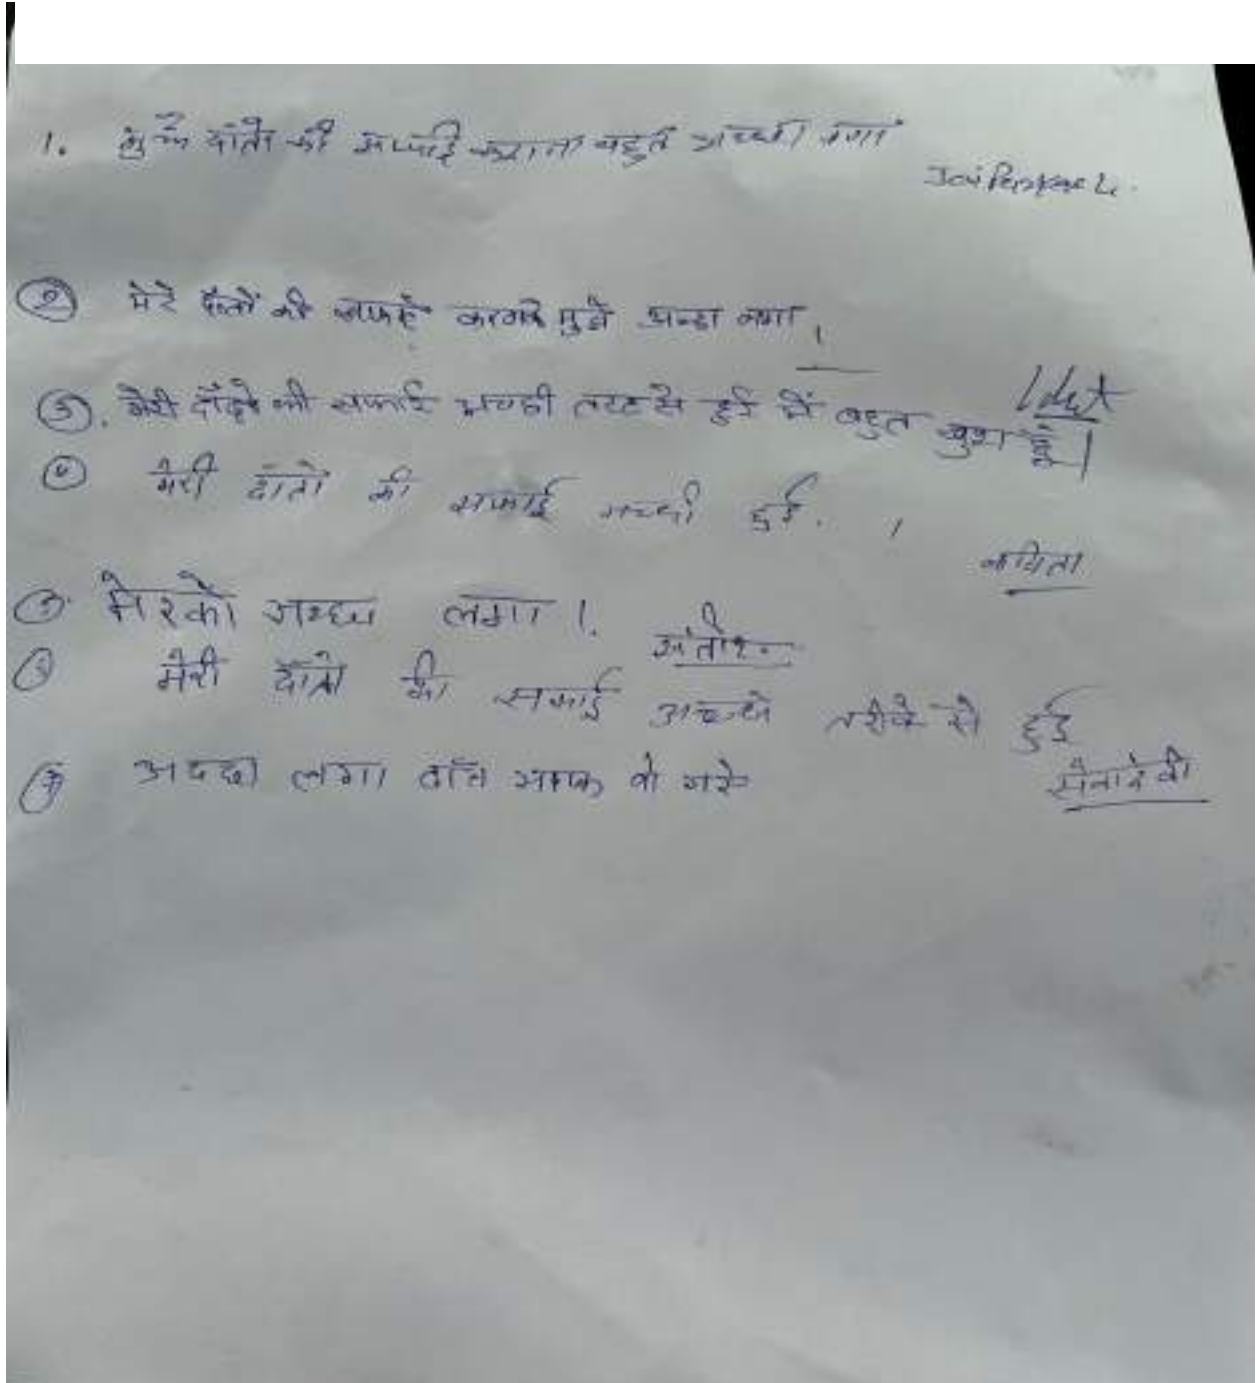 1. मुझे दांतो की सफाई कराना बहुत अच्छा लगा
Jai Parkash.
② मेरे दाँतों की सफाई कराके मुझे अच्छा लगा।
③. मेरी दाँतो की सफाई अच्छी तरह से हुई मैं बहुत खुश हूँ।
④ मेरी दांतो की सफाई अच्छी हुई. ।
कविता
मेरको अच्छा लगा ।.
संतोष
मेरी दाँतो की सफाई अच्छे तरीके से हुई
अच्छा लगा दाँत साफ हो गये